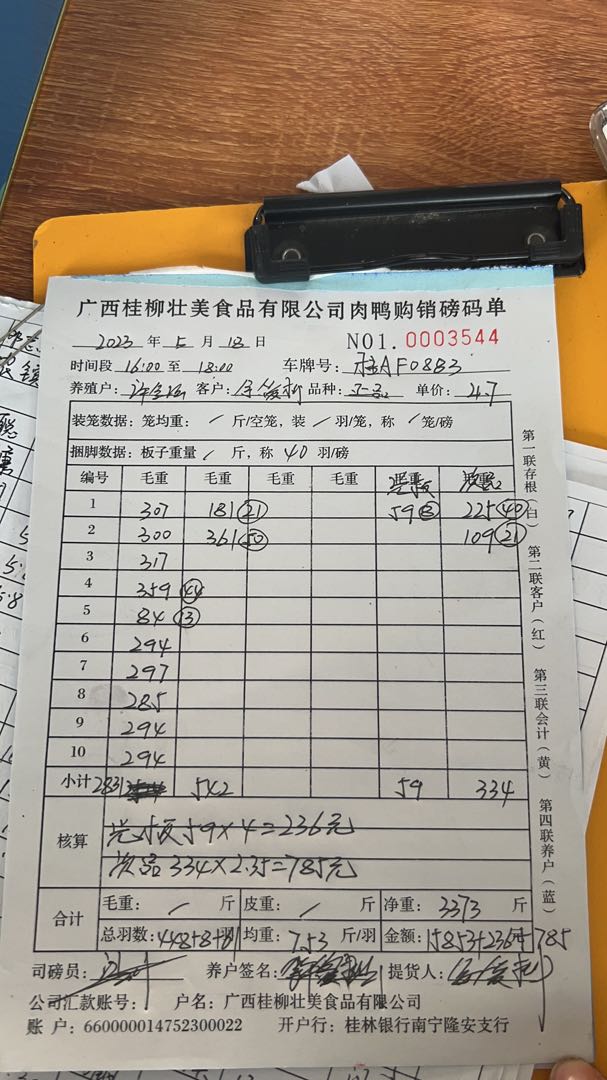 广西桂柳壮美食品有限公司肉鸭购销磅码单
2023 年 5 月 18 日 NO1.0003544
时间段 16:00 至 18:00 车牌号: 桂AF08B3
养殖户: 客户: 品种: 单价: 4.7
装笼数据: 笼均重: / 斤/空笼, 装 / 羽/笼, 称 / 笼/磅
捆脚数据: 板子重量 / 斤, 称 40 羽/磅
编号 毛重 毛重 毛重 毛重
1 307 181 21 59 225 40
2 300 361 50 109 21
3 317
4 359 44
5 84 13
6 294
7 297
8 285
9 294
10 294
小计 2831 542 59 334
核算 59×4=236元
次品 334×2.35=785元
合计 毛重: / 斤 皮重: / 斤 净重: 3373 斤
总羽数: 448 羽 均重: 7.53 斤/羽 金额: 15853+236+785
司磅员: 养户签名: 提货人:
公司汇款账号: 户名: 广西桂柳壮美食品有限公司
账 户: 660000014752300022 开户行: 桂林银行南宁隆安支行
第一联存根(白) 第二联客户(红) 第三联会计(黄) 第四联养户(蓝)